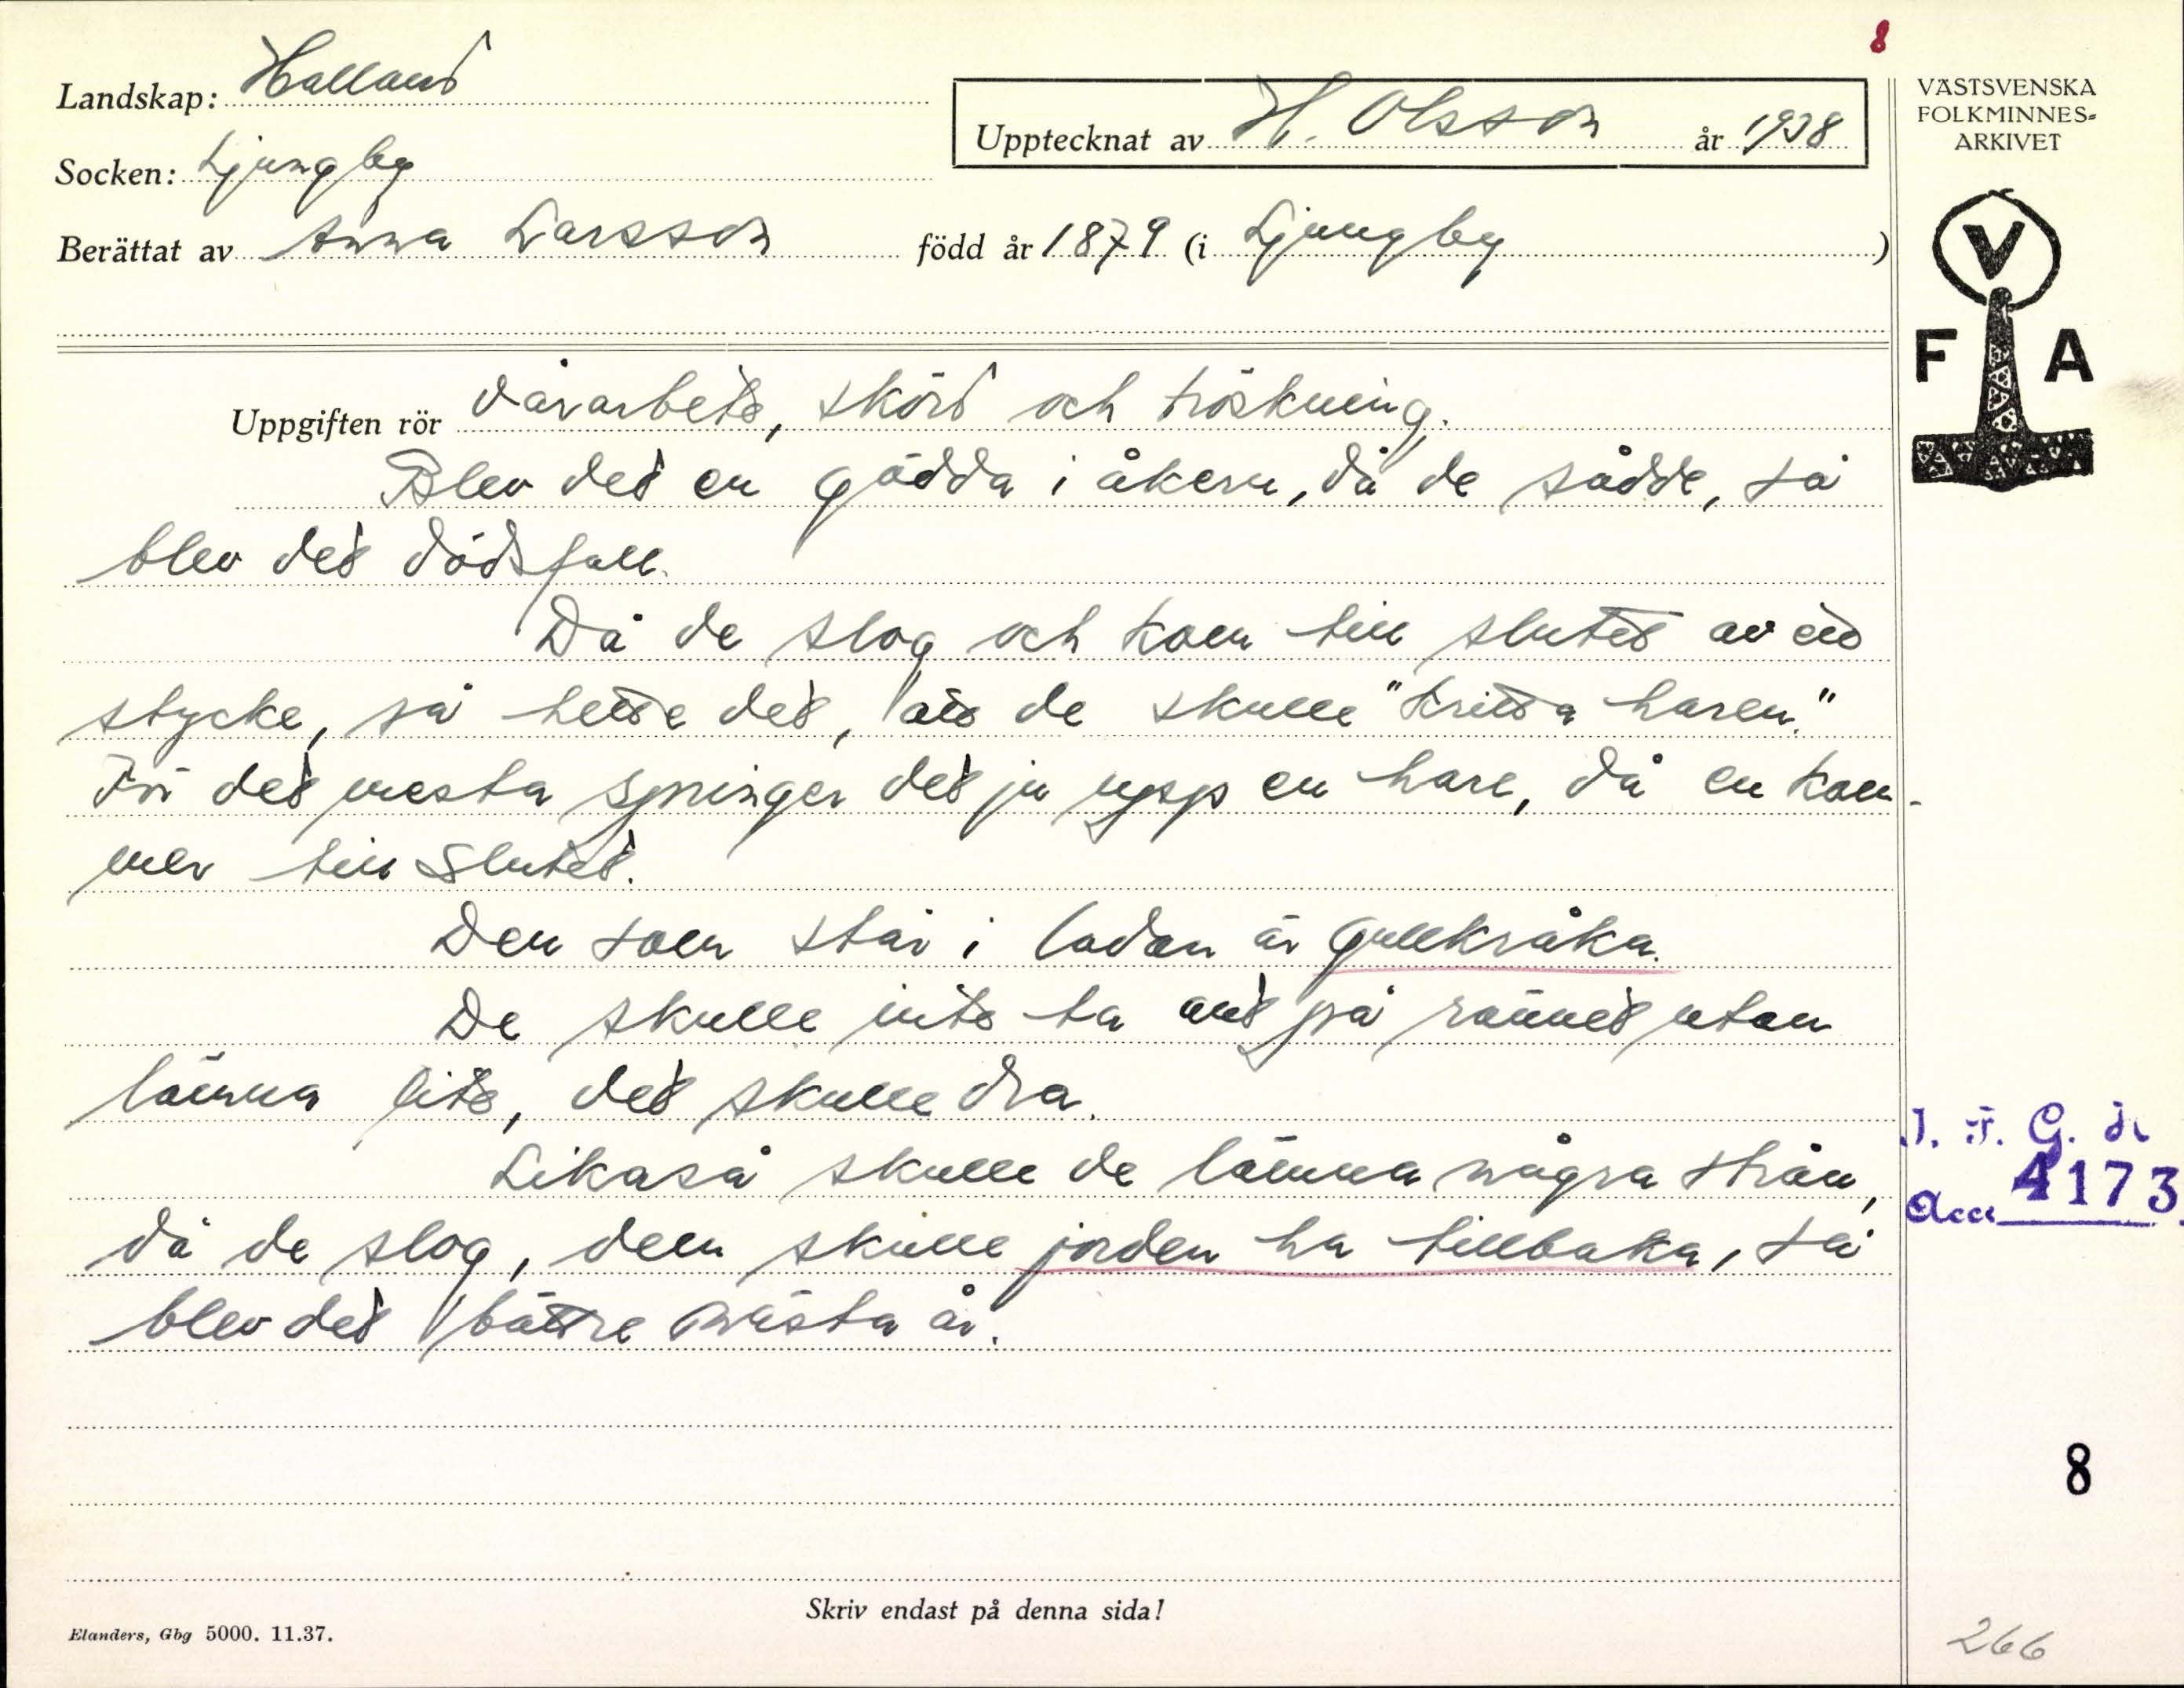 8
Landskap: Halland
Upptecknat av H. Olsson år 1938
VÄSTSVENSKA
FOLKMINNES-
ARKIVET
Socken: Ljungby
Berättat av Anna Larsson född år 1879 (i Ljungby)
V
F A
Uppgiften rör vårarbete, skörd och tröskning.
Blev det en gädda i åkern, då de sådde, så
blev det dödsfall.
Då de slog och kom till slutet av ett
stycke, så hette det, att de skulle "kritta haren."
För det mesta springer det ju upp en hare, då en kom-
mer till slutet.
Den som står i ladan är gullkråka.
De skulle inte ta ant på rännet utan
lämna lite, det skulle dra.
Likaså skulle de lämna några strån,
då de slog, dem skulle jorden ha tillbaka, så
blev det bättre nästa år.
I. F. G. s
Acc 4173
8
Skriv endast på denna sida!
Elanders, Gbg 5000. 11.37.
266